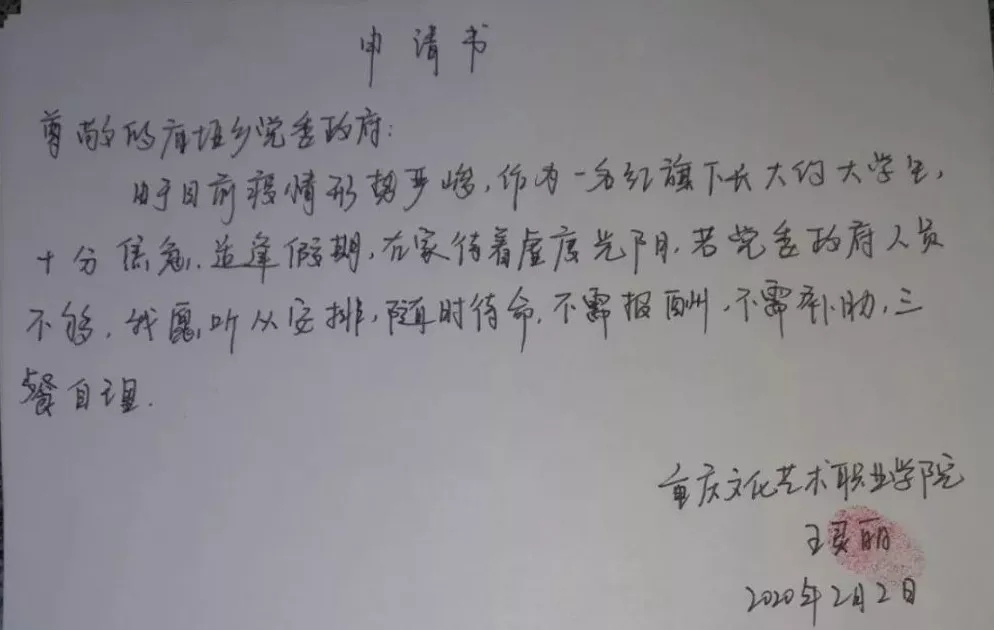 申请书
尊敬的庙垭乡党委政府：
由于目前疫情形势严峻，作为一名红旗下长大的大学生，
十分焦急，适逢假期，在家待着虚度光阴，若党委政府人员
不够，我愿听从安排，随时待命，不需报酬，不需补助，三
餐自理.
重庆文化艺术职业学院
王 丽
2020年2月2日